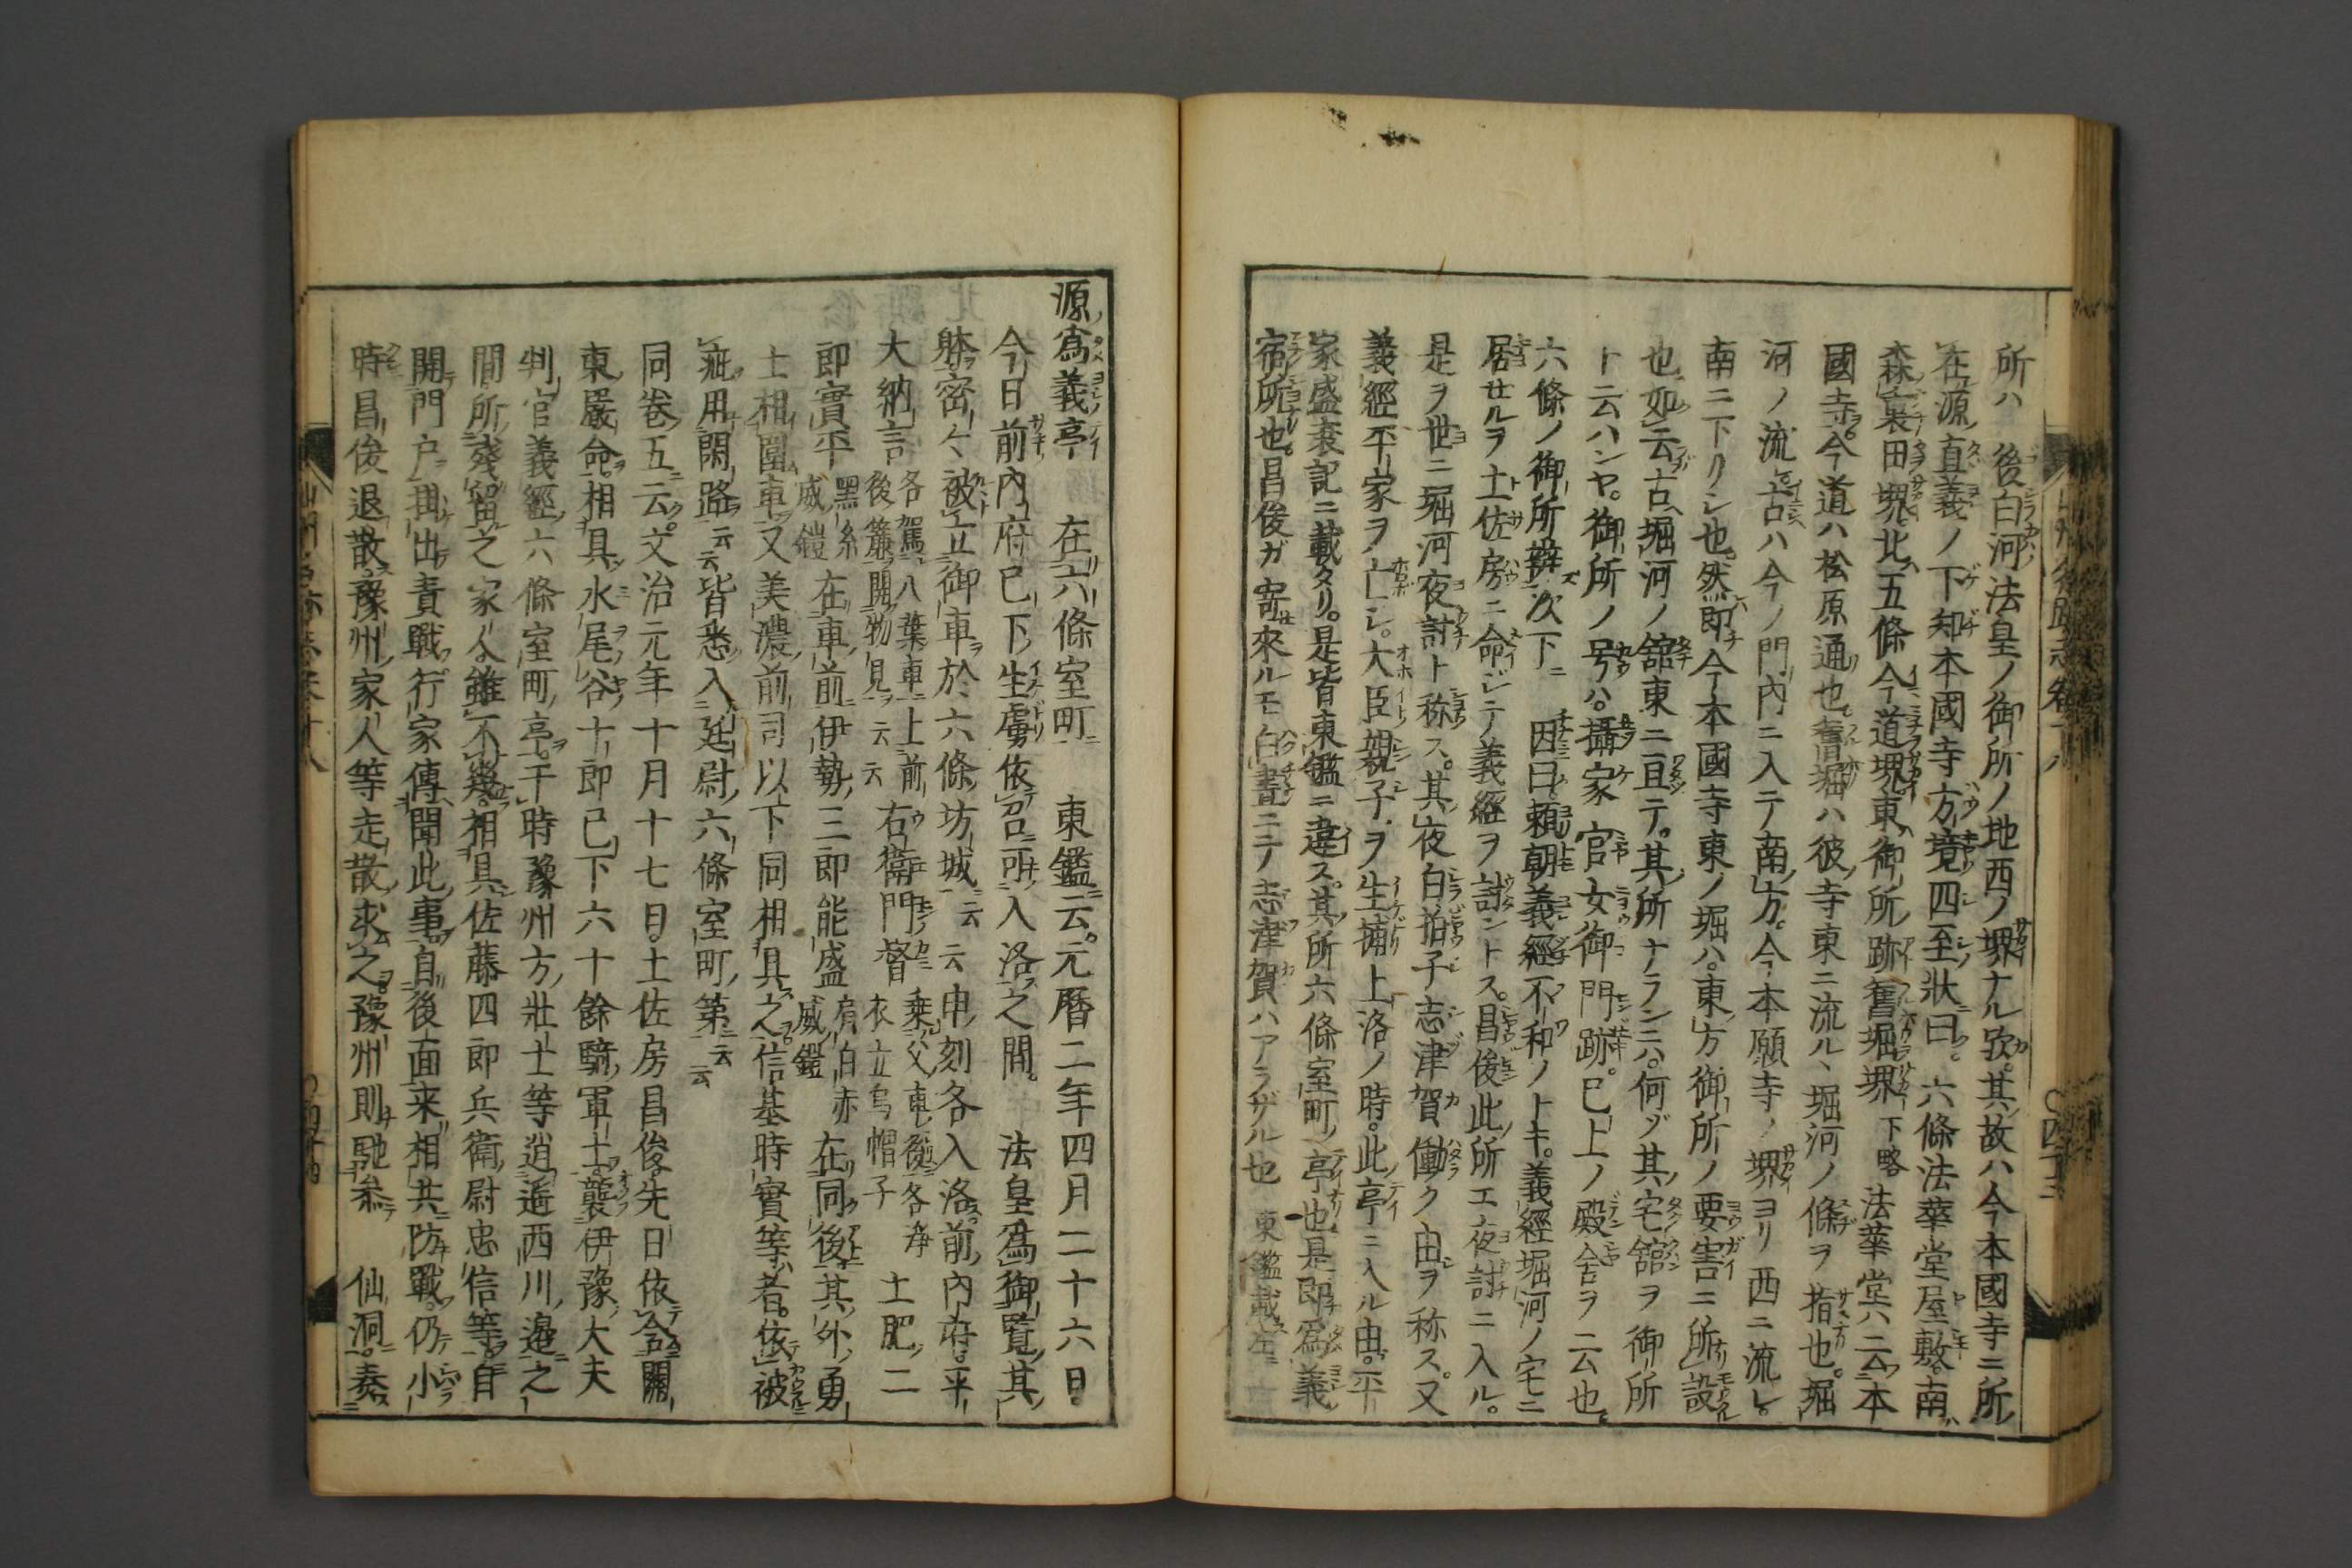 所ハ 後白河法皇ノ御所ノ地西ノ堺ナル歟。其故ハ今本國寺ニ所
在源直義ノ下知本國寺方境四至狀曰。六條法華堂屋敷。南
森裏田堺北五條今道堺東御所跡舊堀堺下略 法華堂ハ云本
國寺。今道ハ松原通也舊堀ハ彼寺東ニ流ルヽ堀河ノ條ヲ指也。堀
河ノ流古ハ今ノ門內ニ入テ南方。今本願寺ノ堺ヨリ西ニ流レ。
南ニ下リシ也。然即今本國寺東ノ堀ハ。東方御所ノ要害ニ所設
也如云古堀河ノ舘東ニ亘テ。其所ナランニハ。何ゾ其宅舘ヲ御所
ト云ハンヤ。御所ノ号ハ。攝家官女御門跡。已上ノ殿舍ヲ云也。
六條ノ御所辨次下ニ 因曰。頼朝義經不和ノトキ。義經堀河ノ宅ニ
居セルヲ土佐房ニ命ジテ義經ヲ討ントス。昌俊此所エ夜討ニ入ル。
是ヲ世ニ堀河夜討ト称ス。其夜白拍子志津賀働ク由ヲ称ス。又
義經平家ヲ亡シ。大臣親子ヲ生捕上洛ノ時。此亭ニ入ル由。平
家盛衰記ニ載タリ。是皆東鑑ニ違ス。其所六條室町ノ亭也是即爲義
宿所也。昌俊ガ寄來ルモ白晝ニテ志津賀ハアラザル也 東鑑載左ニ
源爲義亭 在六條室町 東鑑云。元曆二年四月二十六日。
今日前內府已下生虜依召可入洛之間。 法皇爲御覽其
躰密々被立御車於六條坊城云云申刻各入洛。前內府。平
大納言各駕八葉車上前後簾開物見云云 右衛門督乗父車後各淨衣立烏帽子 土肥二
即實平黑糸威鎧在車前伊勢三郎能盛肩白赤威鎧在同後其外勇
士相圍車又美濃前司以下同相具之信基時實等者。依被
疵用閑路云云皆悉入廷尉六條室町第云云
同卷五云。文治元年十月十七日。土佐房昌俊先日依含關
東嚴命。相具水尾谷十郎已下六十餘騎軍士襲伊豫大夫
判官義經六條室町亭。于時豫州方壯士等逍遥西川邊之
間。所殘留之家人雖不幾相具佐藤四郎兵衛尉忠信等。自
開門戸掛出責戰行家傳聞此事自後面来相共防戰。仍小
時昌俊退散豫州家人等走散求之。豫州則馳參 仙洞。奏